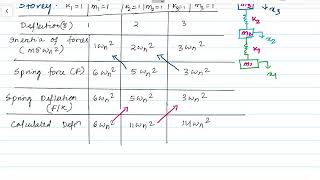 Storey: K₁=1 m₁=1 K₂=1 m₂=1 K₃=1 m₃=1
Deflection(δ) 1 2 3
Inertia of forces (mδωn²) 1ωn² 2ωn² 3ωn²
Spring force (F) 6ωn² 5ωn² 3ωn²
Spring Deflection (F/K) 6ωn² 5ωn² 3ωn²
Calculated Defn 6ωn² 11ωn² 14ωn²
m₃
x₃
m₂
x₂
x₁
m₁
x₁